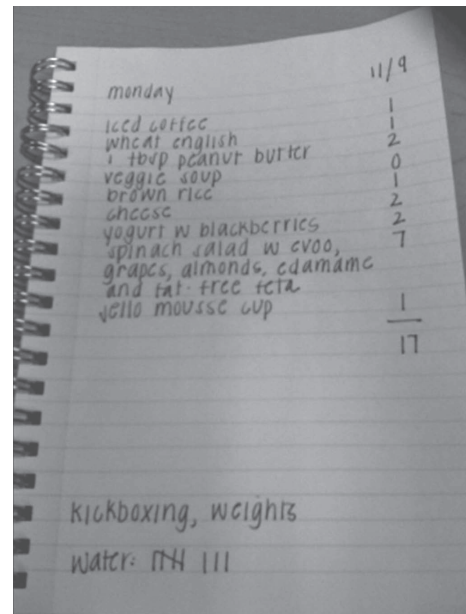 monday 11/9
iced coffee 1
wheat english 1
1 tbsp peanut butter 2
veggie soup 0
brown rice 1
cheese 2
yogurt w blackberries 2
spinach salad w evoo, 7
grapes, almonds, edamame
and fat-free feta
jello mousse cup 1
17
kickboxing, weights
water: 𝍸 |||